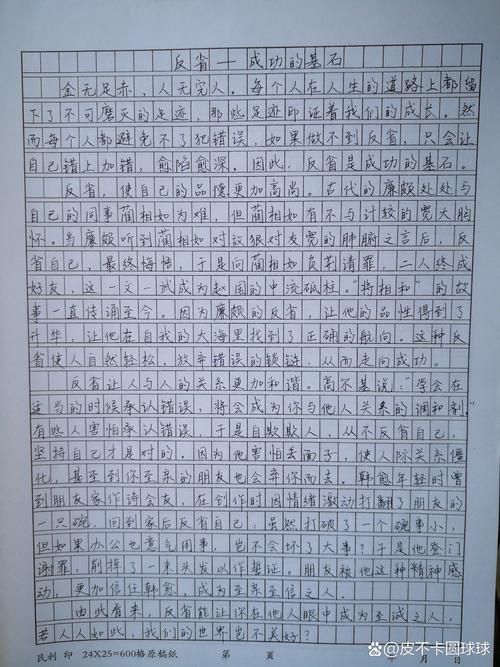 反省—成功的基石
金无足赤，人无完人。每个人在人生的道路上都留
下了不可磨灭的足迹，那些足迹印证着我们的成长。然
而每个人都避免不了犯错误，如果做不到反省，只会让
自己错上加错，愈陷愈深。因此，反省是成功的基石。
反省，使自己的品德更加高尚。古代的廉颇处处与
自己的同事蔺相如为难，但蔺相如有不与计较的宽大胸
怀。当廉颇听到蔺相如对敌狠对友宽的肺腑之言后，反
省自己，最终悔悟，于是向蔺相如负荆请罪，二人终成
好友，这一文一武成为赵国的中流砥柱。“将相和”的故
事一直传诵至今。因为廉颇的反省，让他的品性得到了
升华，让他在自我的大海里找到了正确的航向。这种反
省使人自然轻松，放弃错误的锁链，从而走向成功。
反省让人与人的关系更加和谐。高尔基说：“学会在
适当的时候承认错误，将会成为你与他人关系的调和剂。”
有些人害怕承认错误，于是自欺欺人，从不反省自己，
坚持自己才是对的。因为他害怕丢面子，使人际关系僵
化，甚至到你至亲的朋友也会弃你而去。韩愈年轻时曾
到朋友家作诗会友，在创作时因情绪激动打翻了朋友的
一只碗，回到家后反省自己：虽然打破了一个碗事小，
但如果办公也意气用事，岂不会坏了大事？于是他登门
谢罪，削掉了一束头发以作誓证。朋友被他这种精神感
动，更加信任韩愈，成为至亲至信之人。
由此看来，反省能让你在他人眼中成为至诚之人，
若人人如此，我们的世界岂不美好？
民利 印 24X25=600格原稿纸 第 页 年 月 日
@皮不卡圆球球